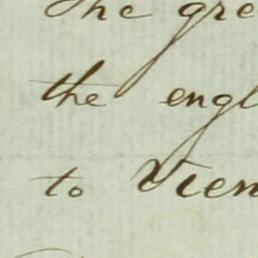 The gre
the engl
to Vien